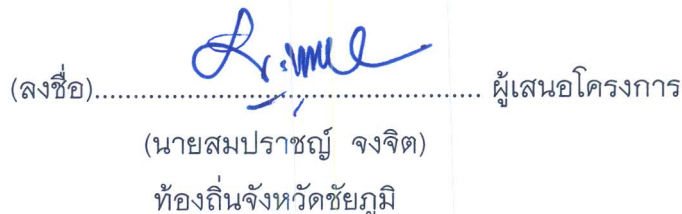 (ลงชื่อ)................................................ ผู้เสนอโครงการ
(นายสมปราชญ์ จงจิต)
ท้องถิ่นจังหวัดชัยภูมิ